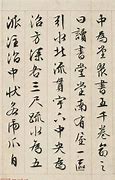 中為堂聚書五千卷命之
曰讀書堂堂南有屋一區
引水北流貫宇下中央為
沼方深各三尺疏水為五
派注沼中狀若虎爪